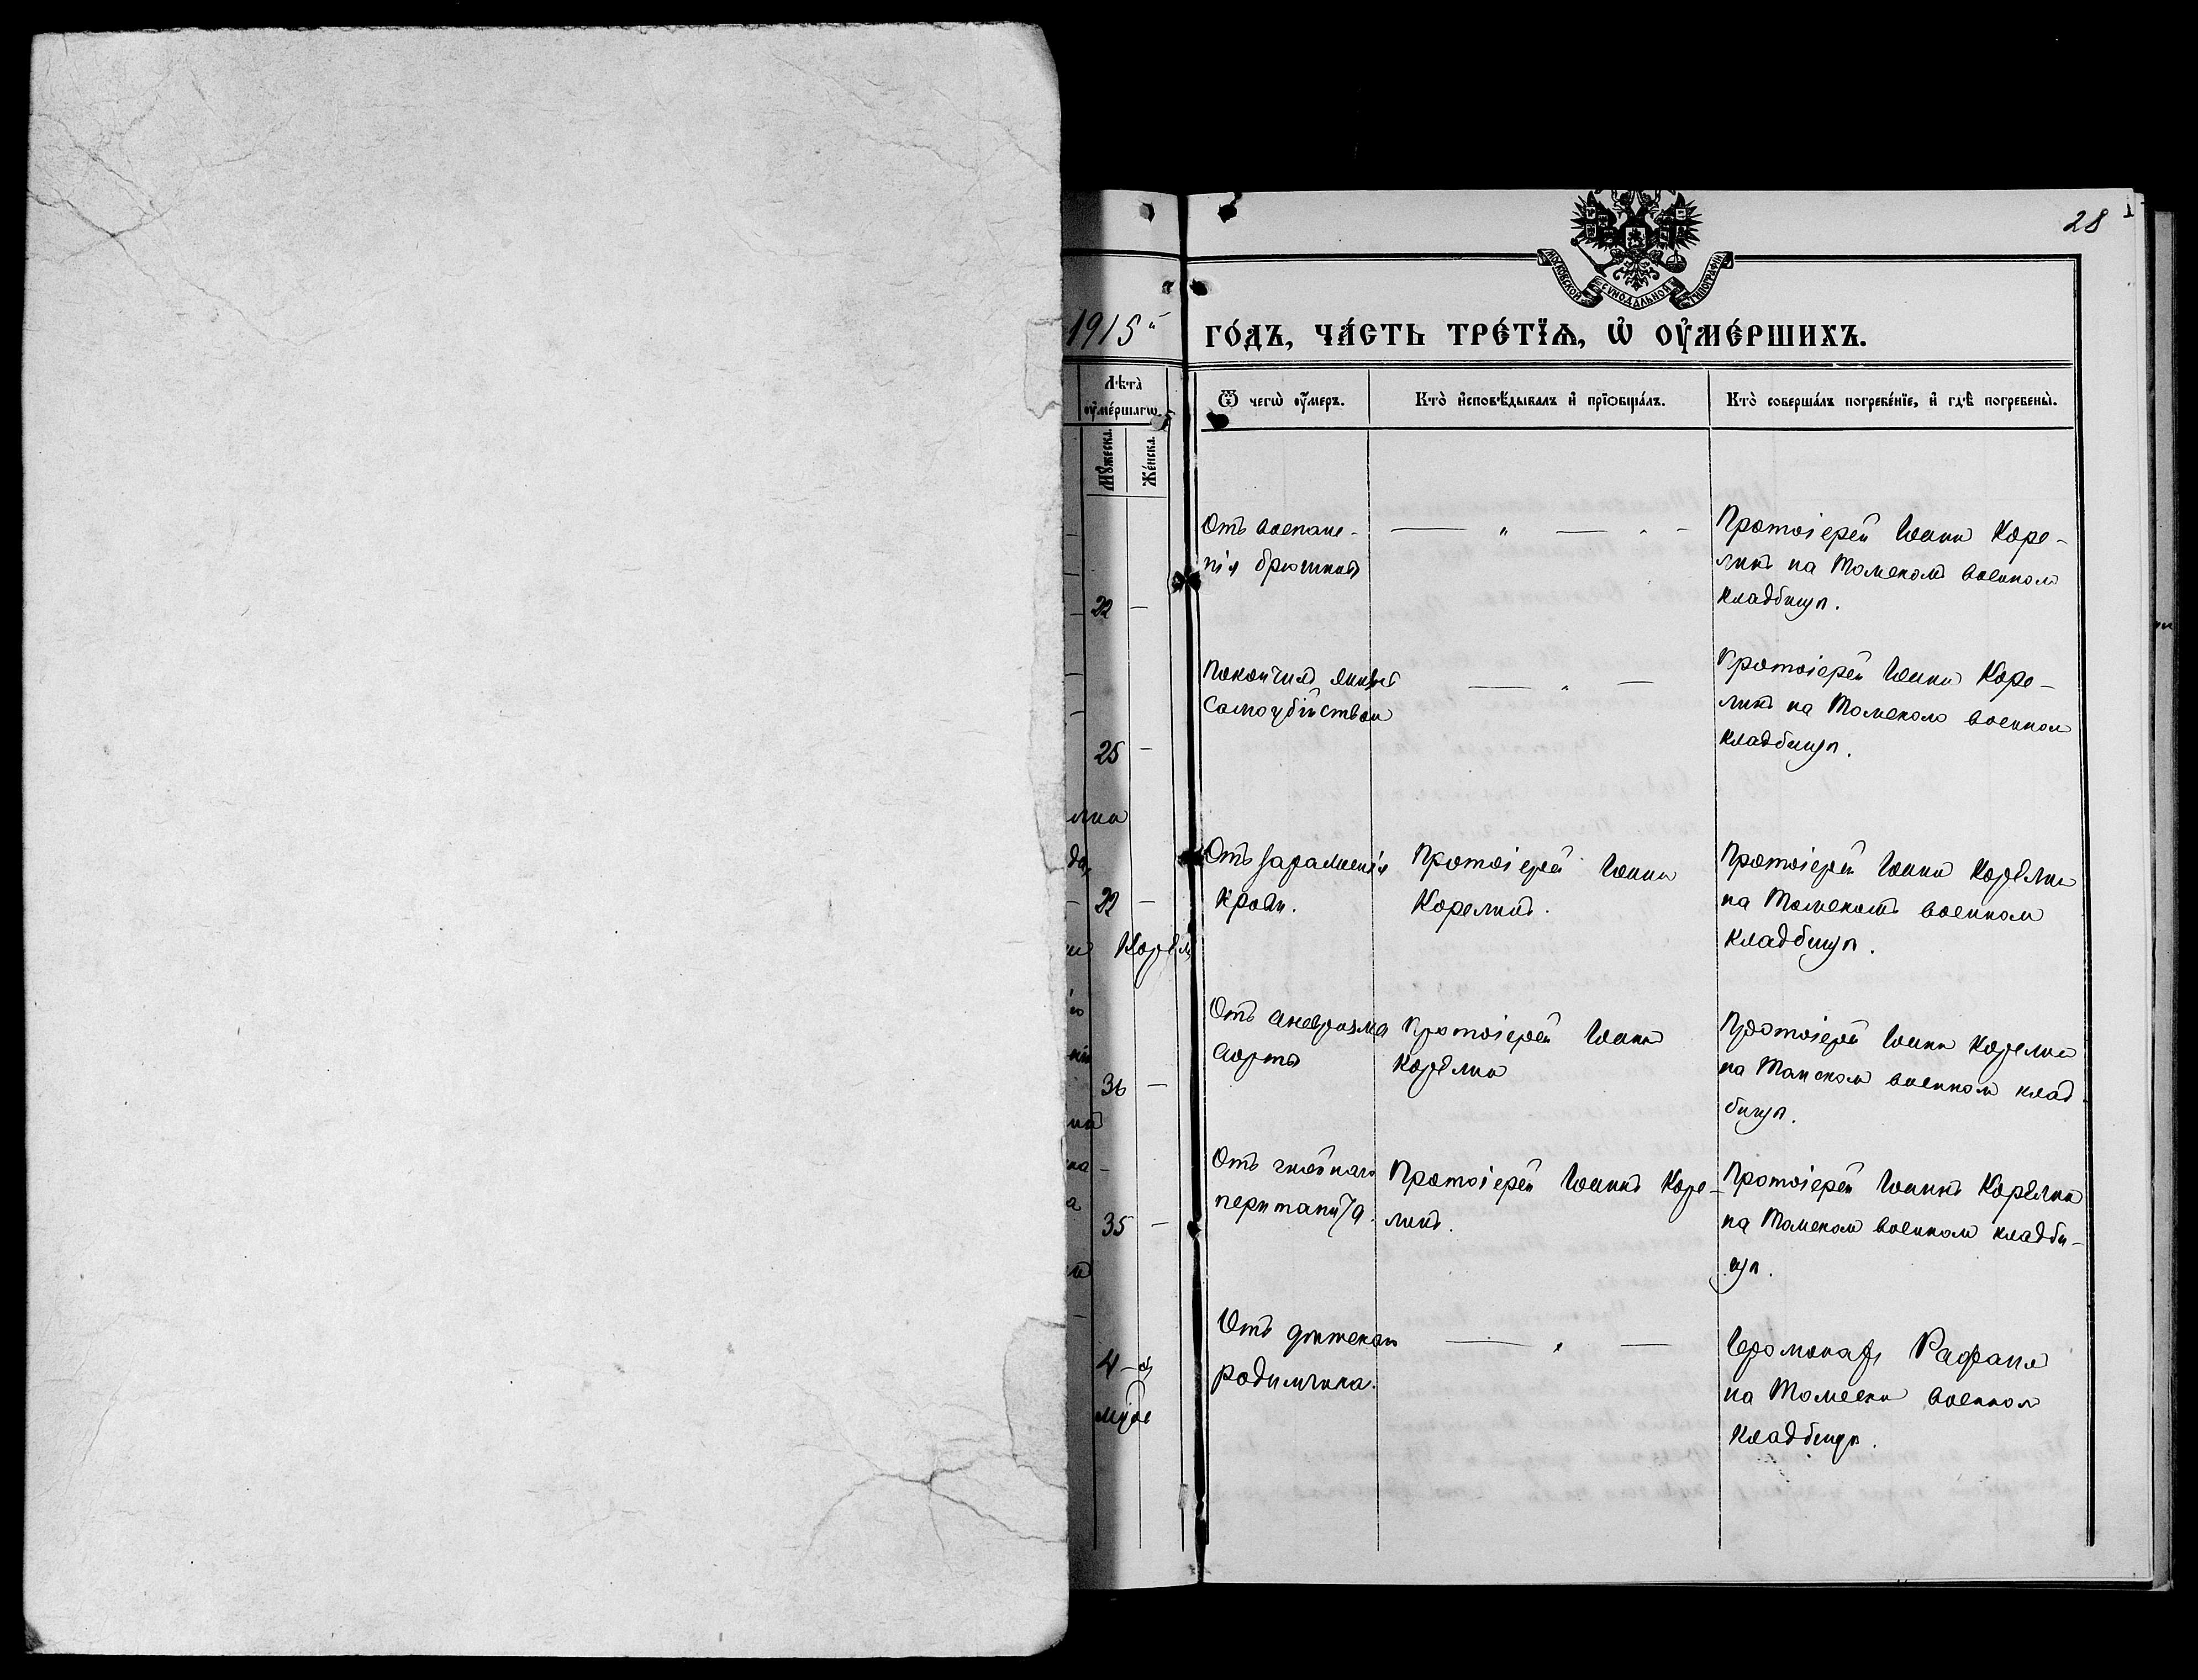 28
МОСКОВСКОЙ СѴНОДАЛЬНОЙ ТИПОГРАФІИ
1915й
ГО́ДЪ, ЧА́СТЬ ТРЕ́ТЇѦ, Ѡ҆ ОУ҆МЕ́РШИХЪ.
Лѣта̀
оу҆ме́ршагѡ.
Мꙋжеска.
Же́нска.
Ѿ чегѡ̀ оу҆́меръ.
Кто̀ и҆сповѣ́дывалъ и҆ прїѡбща́лъ.
Кто̀ соверша́лъ погребе́нїе, и҆ гдѣ̀ погребены̀.
Отъ воспале-
нія брюшины
— " —
Протоіерей Іоаннъ Коре-
линъ на Томскомъ военномъ
кладбищѣ.
22 —
Покончилъ жизнь
самоубійствомъ
— " —
Протоіерей Іоаннъ Коре-
линъ на Томскомъ военномъ
кладбищѣ.
25 —
Отъ зараженія
крови.
Протоіерей Іоаннъ
Корелинъ.
Протоіерей Іоаннъ Корелинъ
на Томскомъ военномъ
кладбищѣ.
22 —
Корел
Отъ аневризма
аорты
Протоіерей Іоаннъ
Корелинъ
Протоіерей Іоаннъ Корелинъ
на Томскомъ военномъ клад-
бищѣ.
36 —
Отъ гнойнаго
перитонита.
Протоіерей Іоаннъ Коре-
линъ.
Протоіерей Іоаннъ Корелинъ
на Томскомъ военномъ кладби-
щѣ.
35 —
Отъ дѣтскаго
родимчика.
— " —
Іеромонахъ Рафаилъ
на Томскомъ военномъ
кладбищѣ.
4